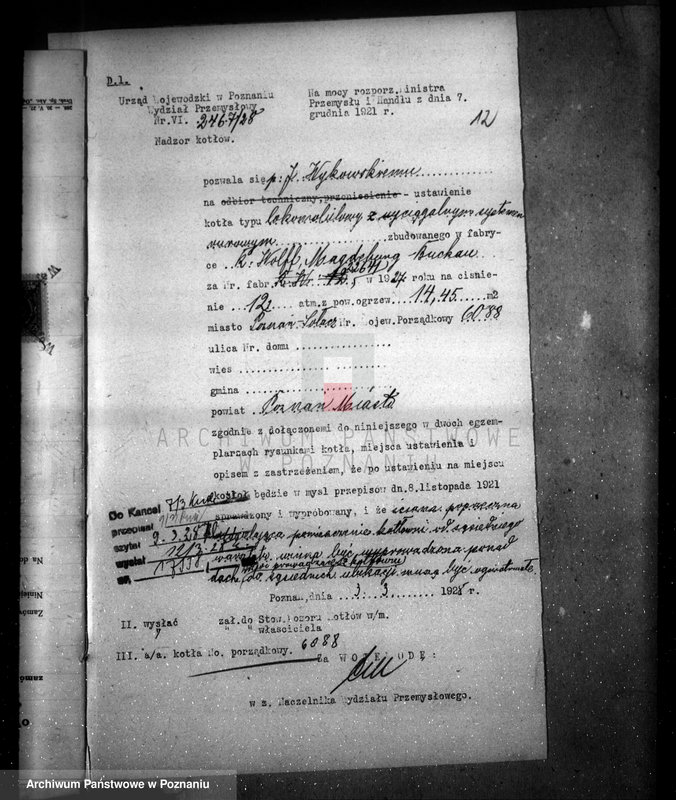 D.1.
Urząd Wojewodzki w Poznaniu
Wydział Przemysłowy
Nr.VI. 2467/28
Nadzor kotłów.
Na mocy rozporz.Ministra
Przemysłu i Handlu z dnia 7.
grudnia 1921 r.
12
pozwala się p. J. Wykowskiemu
na odbior techniczny, przeniesienie - ustawienie
kotła typu lokomobilowy z wyciągalnym systemem
rurowym zbudowanego w fabry-
ce R. Wolff Magdeburg Buckau
za Nr. fabr. w 1927 roku na ciśnie-
nie 12 atm.z pow.ogrzew. 14,45 m2
miasto Poznań Sołacz Nr. Wojew.Porządkowy 6088
ulica Nr. domu
wies
gmina
powiat Poznań Miasto
zgodnie z dołączonemi do niniejszego w dwoch egzem-
plarzach rysunkami kotła, miejsca ustawienia i
opisem z zastrzeżeniem, że po ustawieniu na miejscu
kotłoł będzie w mysl przepisów dn.8.listopada 1921
sprawdzony i wypróbowany, i że ściana poprzeczna
pomieszczenie kotłowni od sąsiedniego
winna być wyprowadzona ponad
dach, do sąsiednich ubikacji muszą być
Do Kancel. 7/3
przepisał
czytał 9.3.28
wysłał 12/3.28
Poznań,dnia 3. 3. 1928 r.
II. wysłać zał.do Stow.Dozoru Kotłów w/m.
" " " właściciela
III. a/a. kotła No. porządkowy. 6088
Za WOJEWODĘ:
w z. Naczelnika Wydziału Przemysłowego.
ARCHIWUM PAŃSTWOWE
W POZNANIU
Archiwum Państwowe w Poznaniu